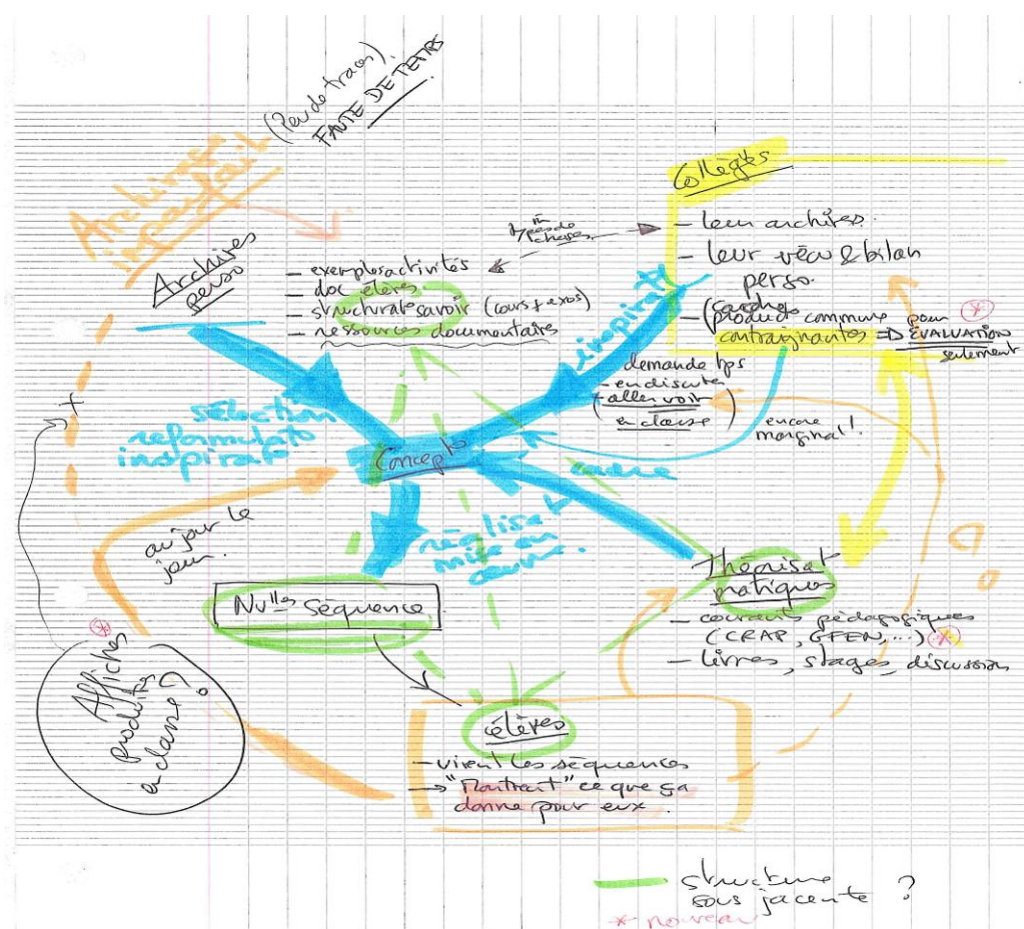 (Peu de traces).
FAUTE DE TEMPS
Archivage
imparfait
Archives
perso
- exemples activités
- doc élèves
- structurat° savoir (cours + exos)
- ressources documentaires
m̂ types de
choses
Collègues
- leurs archives.
- leur vécu & bilan
perso.
- product° commune pour *
contraignantes => ÉVALUATION
seulement
inspirat°
demande tps
- en discuter
(+ aller voir)
en classe
encore
marginal !
sélection
reformulat°
inspirat°
Concept°
cadre
réalisat°
mise en
œuvre.
au jour le
jour.
Nvlles séquence
Théorisat°
pratiques
- courants pédagogiques
(CRAP, GFEN, ...) *
- livres, stages, discussions
*
Affiches
produites
en classe ?
élèves
- vivent les séquences
-> "Montrent" ce que ça
donne pour eux.
structure
sous jacente ?
* nouveau